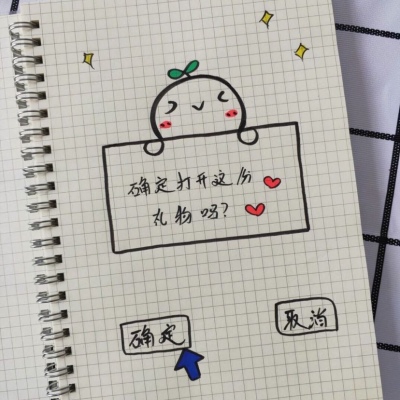 确定打开这份
礼物吗?
确定
取消